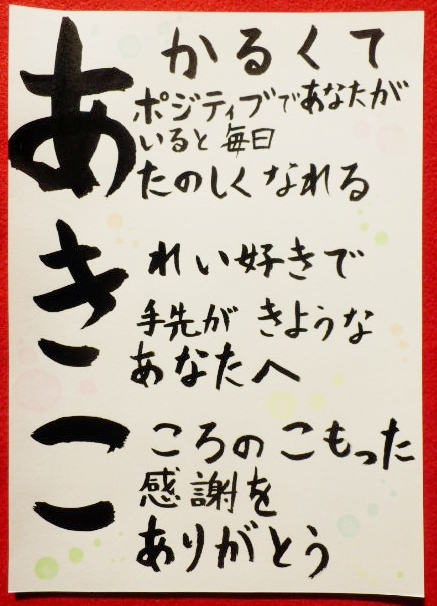 あかるくて
ポジティブであなたが
いると毎日
たのしくなれる
きれい好きで
手先がきような
あなたへ
こころのこもった
感謝を
ありがとう